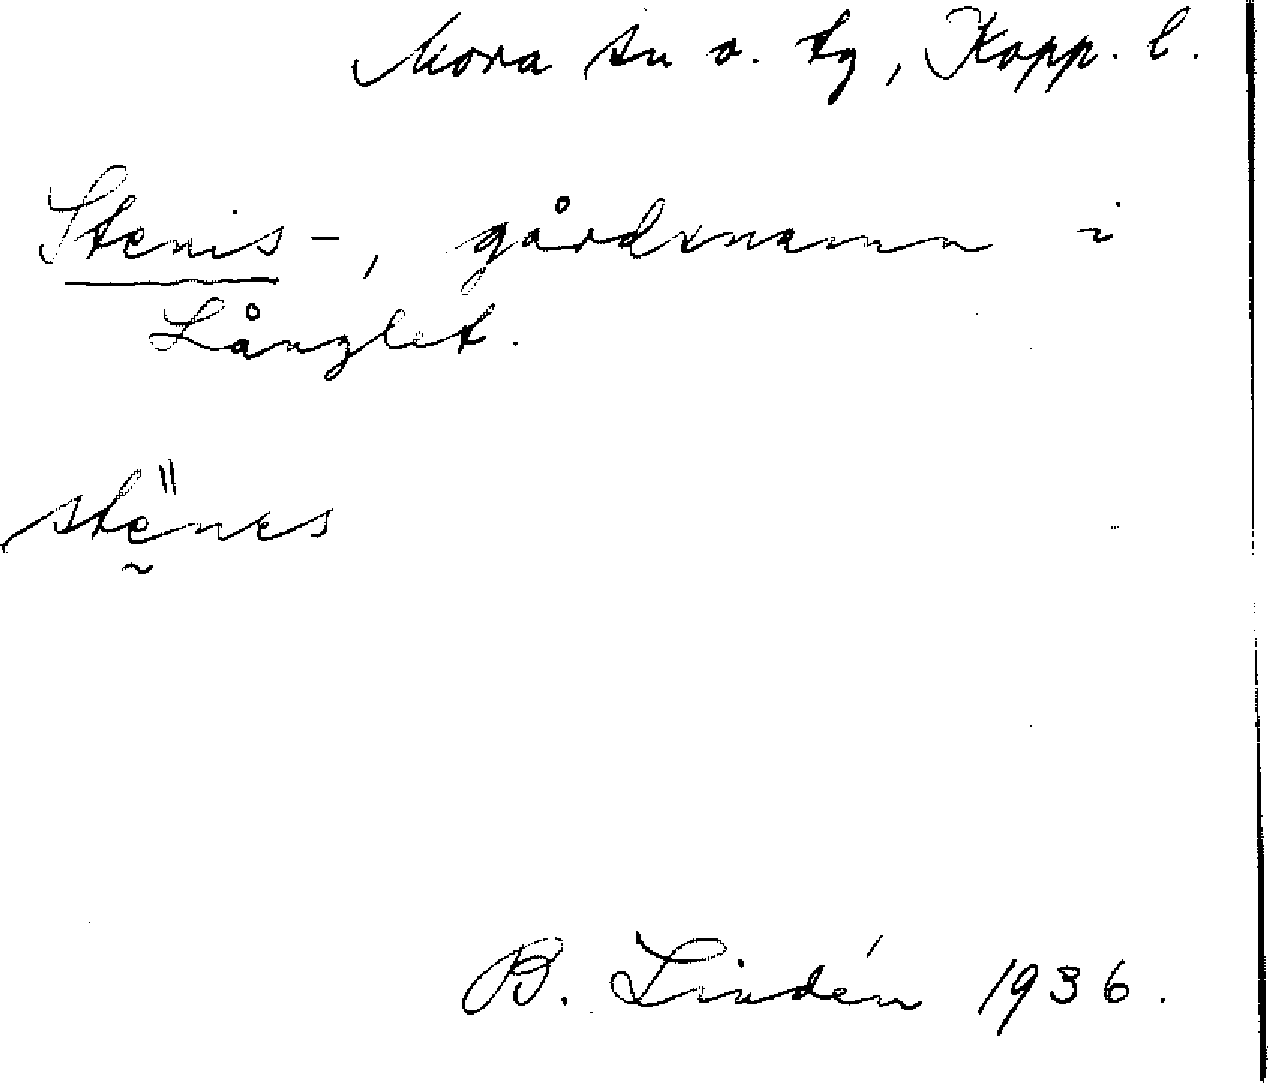 Mora sn o. tg, Kopp. l.
Stenis-, gårdsnamn i
Långlet.
stẽnes
B. Lindén 1936.